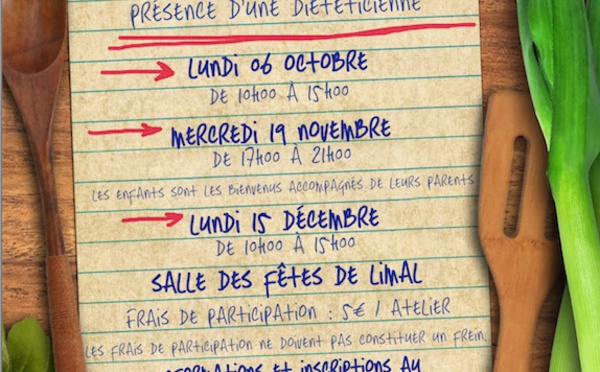 PRÉSENCE D'UNE DIÉTÉTICIENNE
LUNDI 06 OCTOBRE
DE 10H00 À 15H00
MERCREDI 19 NOVEMBRE
DE 17H00 À 21H00
LES ENFANTS SONT LES BIENVENUS ACCOMPAGNÉS DE LEURS PARENTS
LUNDI 15 DÉCEMBRE
DE 10H00 À 15H00
SALLE DES FÊTES DE LIMAL
FRAIS DE PARTICIPATION : 5€ / ATELIER
LES FRAIS DE PARTICIPATION NE DOIVENT PAS CONSTITUER UN FREIN.
INFORMATIONS ET INSCRIPTIONS AU